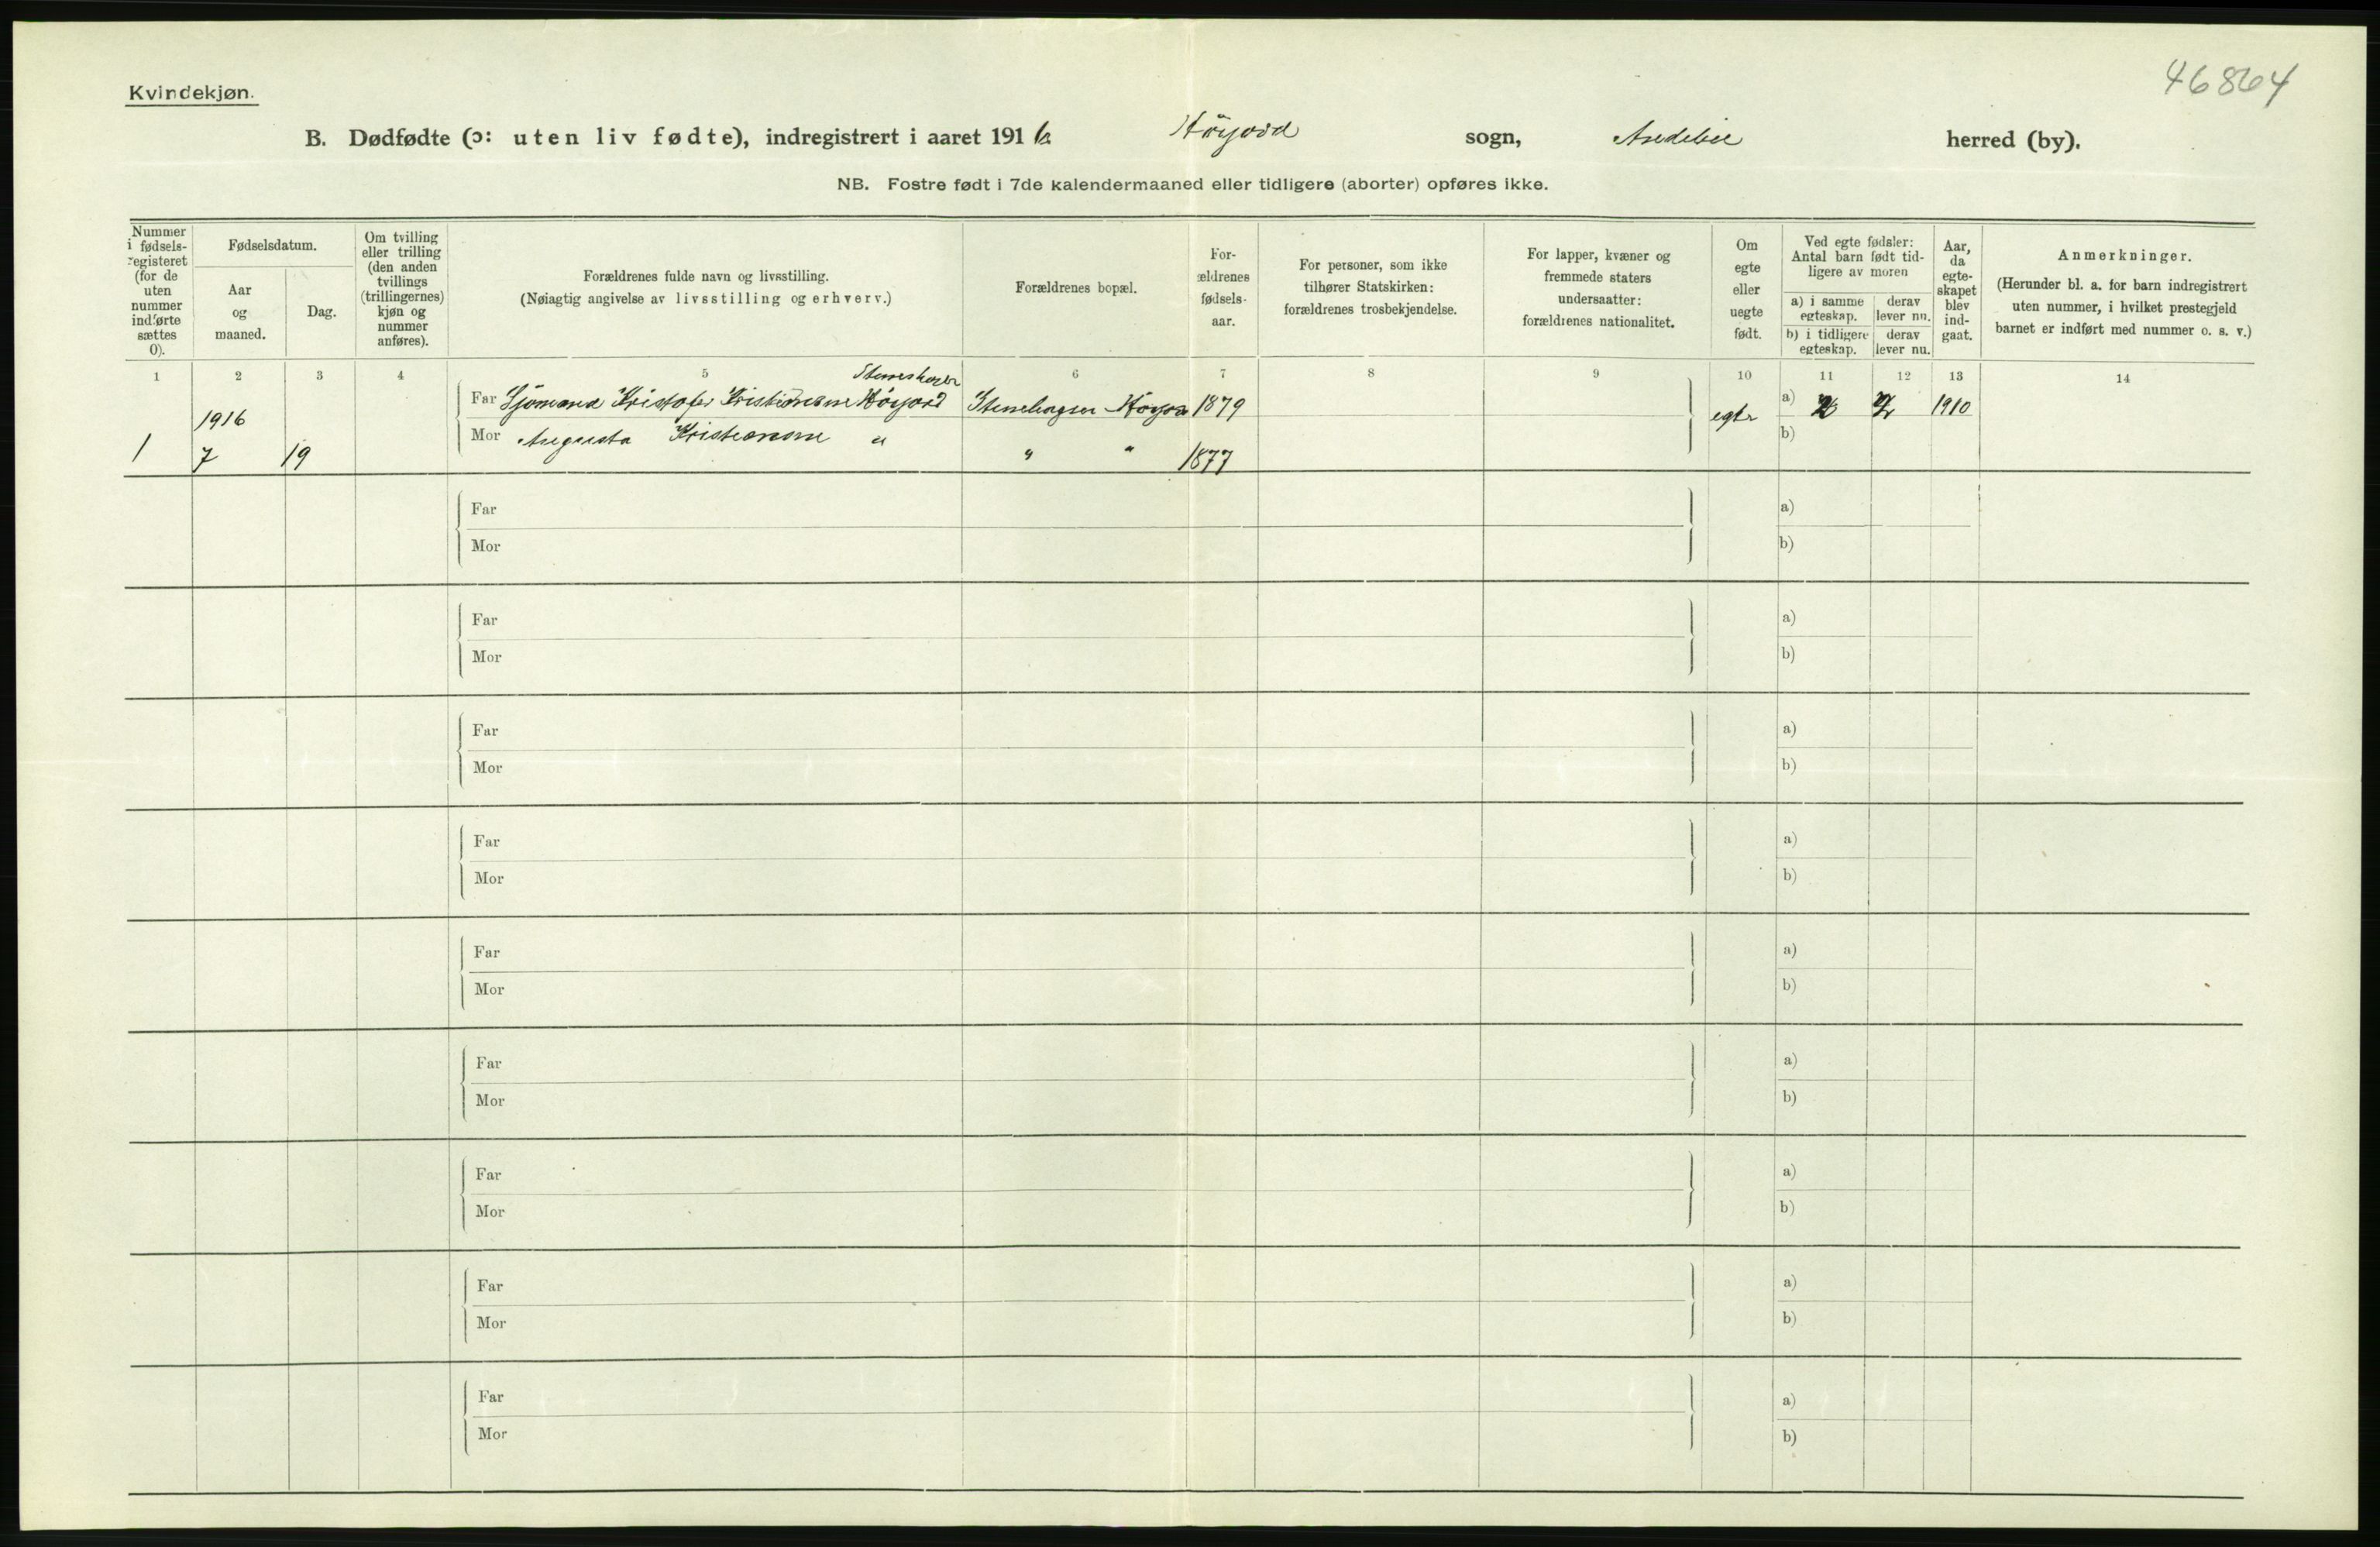 46864
Kvindekjøn.
B. Dødfødte (ɔ: uten liv fødte), indregistrert i aaret 1916 Høyjord sogn, Andebu herred (by).
NB. Fostre født i 7de kalendermaaned eller tidligere (aborter) opføres ikke.
Nummer i fødsels-registeret (for de uten nummer indførte sættes 0).
Fødselsdatum.
Aar og maaned.
Dag.
Om tvilling eller trilling (den anden tvillings (trillingernes) kjøn og nummer anføres).
Forældrenes fulde navn og livsstilling.
(Nøiagtig angivelse av livsstilling og erhverv.)
Forældrenes bopæl.
For-ældrenes fødsels-aar.
For personer, som ikke tilhører Statskirken: forældrenes trosbekjendelse.
For lapper, kvæner og fremmede staters undersaatter: forældrenes nationalitet.
Om egte eller uegte født.
Ved egte fødsler: Antal barn født tid-ligere av moren
a) i samme egteskap. derav lever nu.
b) i tidligere egteskap. derav lever nu.
Aar, da egte-skapet blev ind-gaat.
Anmerkninger.
(Herunder bl. a. for barn indregistrert uten nummer, i hvilket prestegjeld barnet er indført med nummer o. s. v.)
1 2 3 4 5 6 7 8 9 10 11 12 13 14
Far Sjömand Kristofer Kristiansen Høyjord Stenehagen Høyjord 1879 egte a) 2 2 1910
1 1916 7 19 Mor Augusta Kristiansen " " " 1877 b)
Far a)
Mor b)
Far a)
Mor b)
Far a)
Mor b)
Far a)
Mor b)
Far a)
Mor b)
Far a)
Mor b)
Far a)
Mor b)
Far a)
Mor b)
Far a)
Mor b)